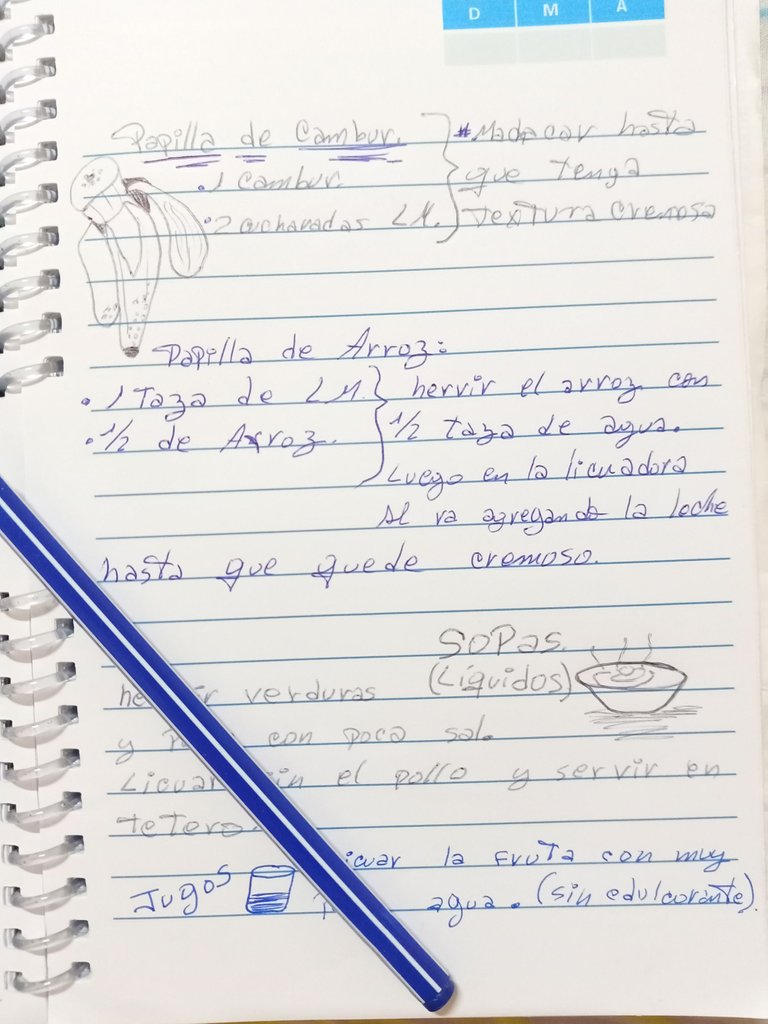 D M A
Papilla de Cambur.
• 1 Cambur.
• 2 cucharadas L.M.
* Madacar hasta
que tenga
textura cremosa
Papilla de Arroz:
• 1 Taza de L.M.
• 1/2 de Arroz.
hervir el arroz con
1/2 taza de agua.
Luego en la licuadora
se va agregando la leche
hasta que quede cremoso.
SOPAS.
(Líquidos)
verduras
y con poca sal.
Licuar sin el pollo y servir en
tetero.
Jugos
la fruta con muy
agua. (sin edulcorante).